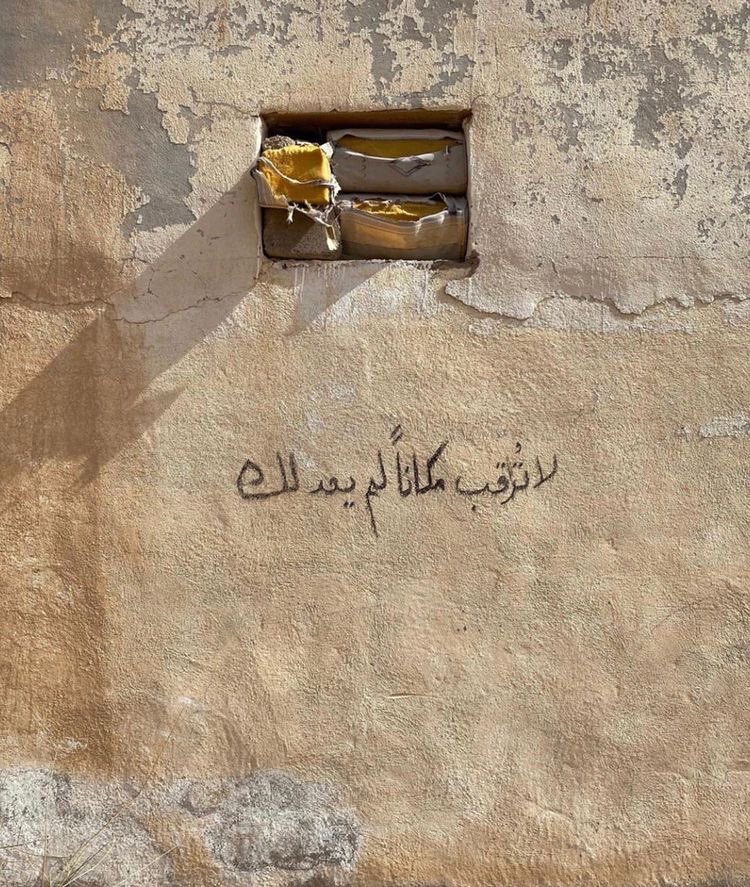 لا تُرقب مكاناً لم يعد لك